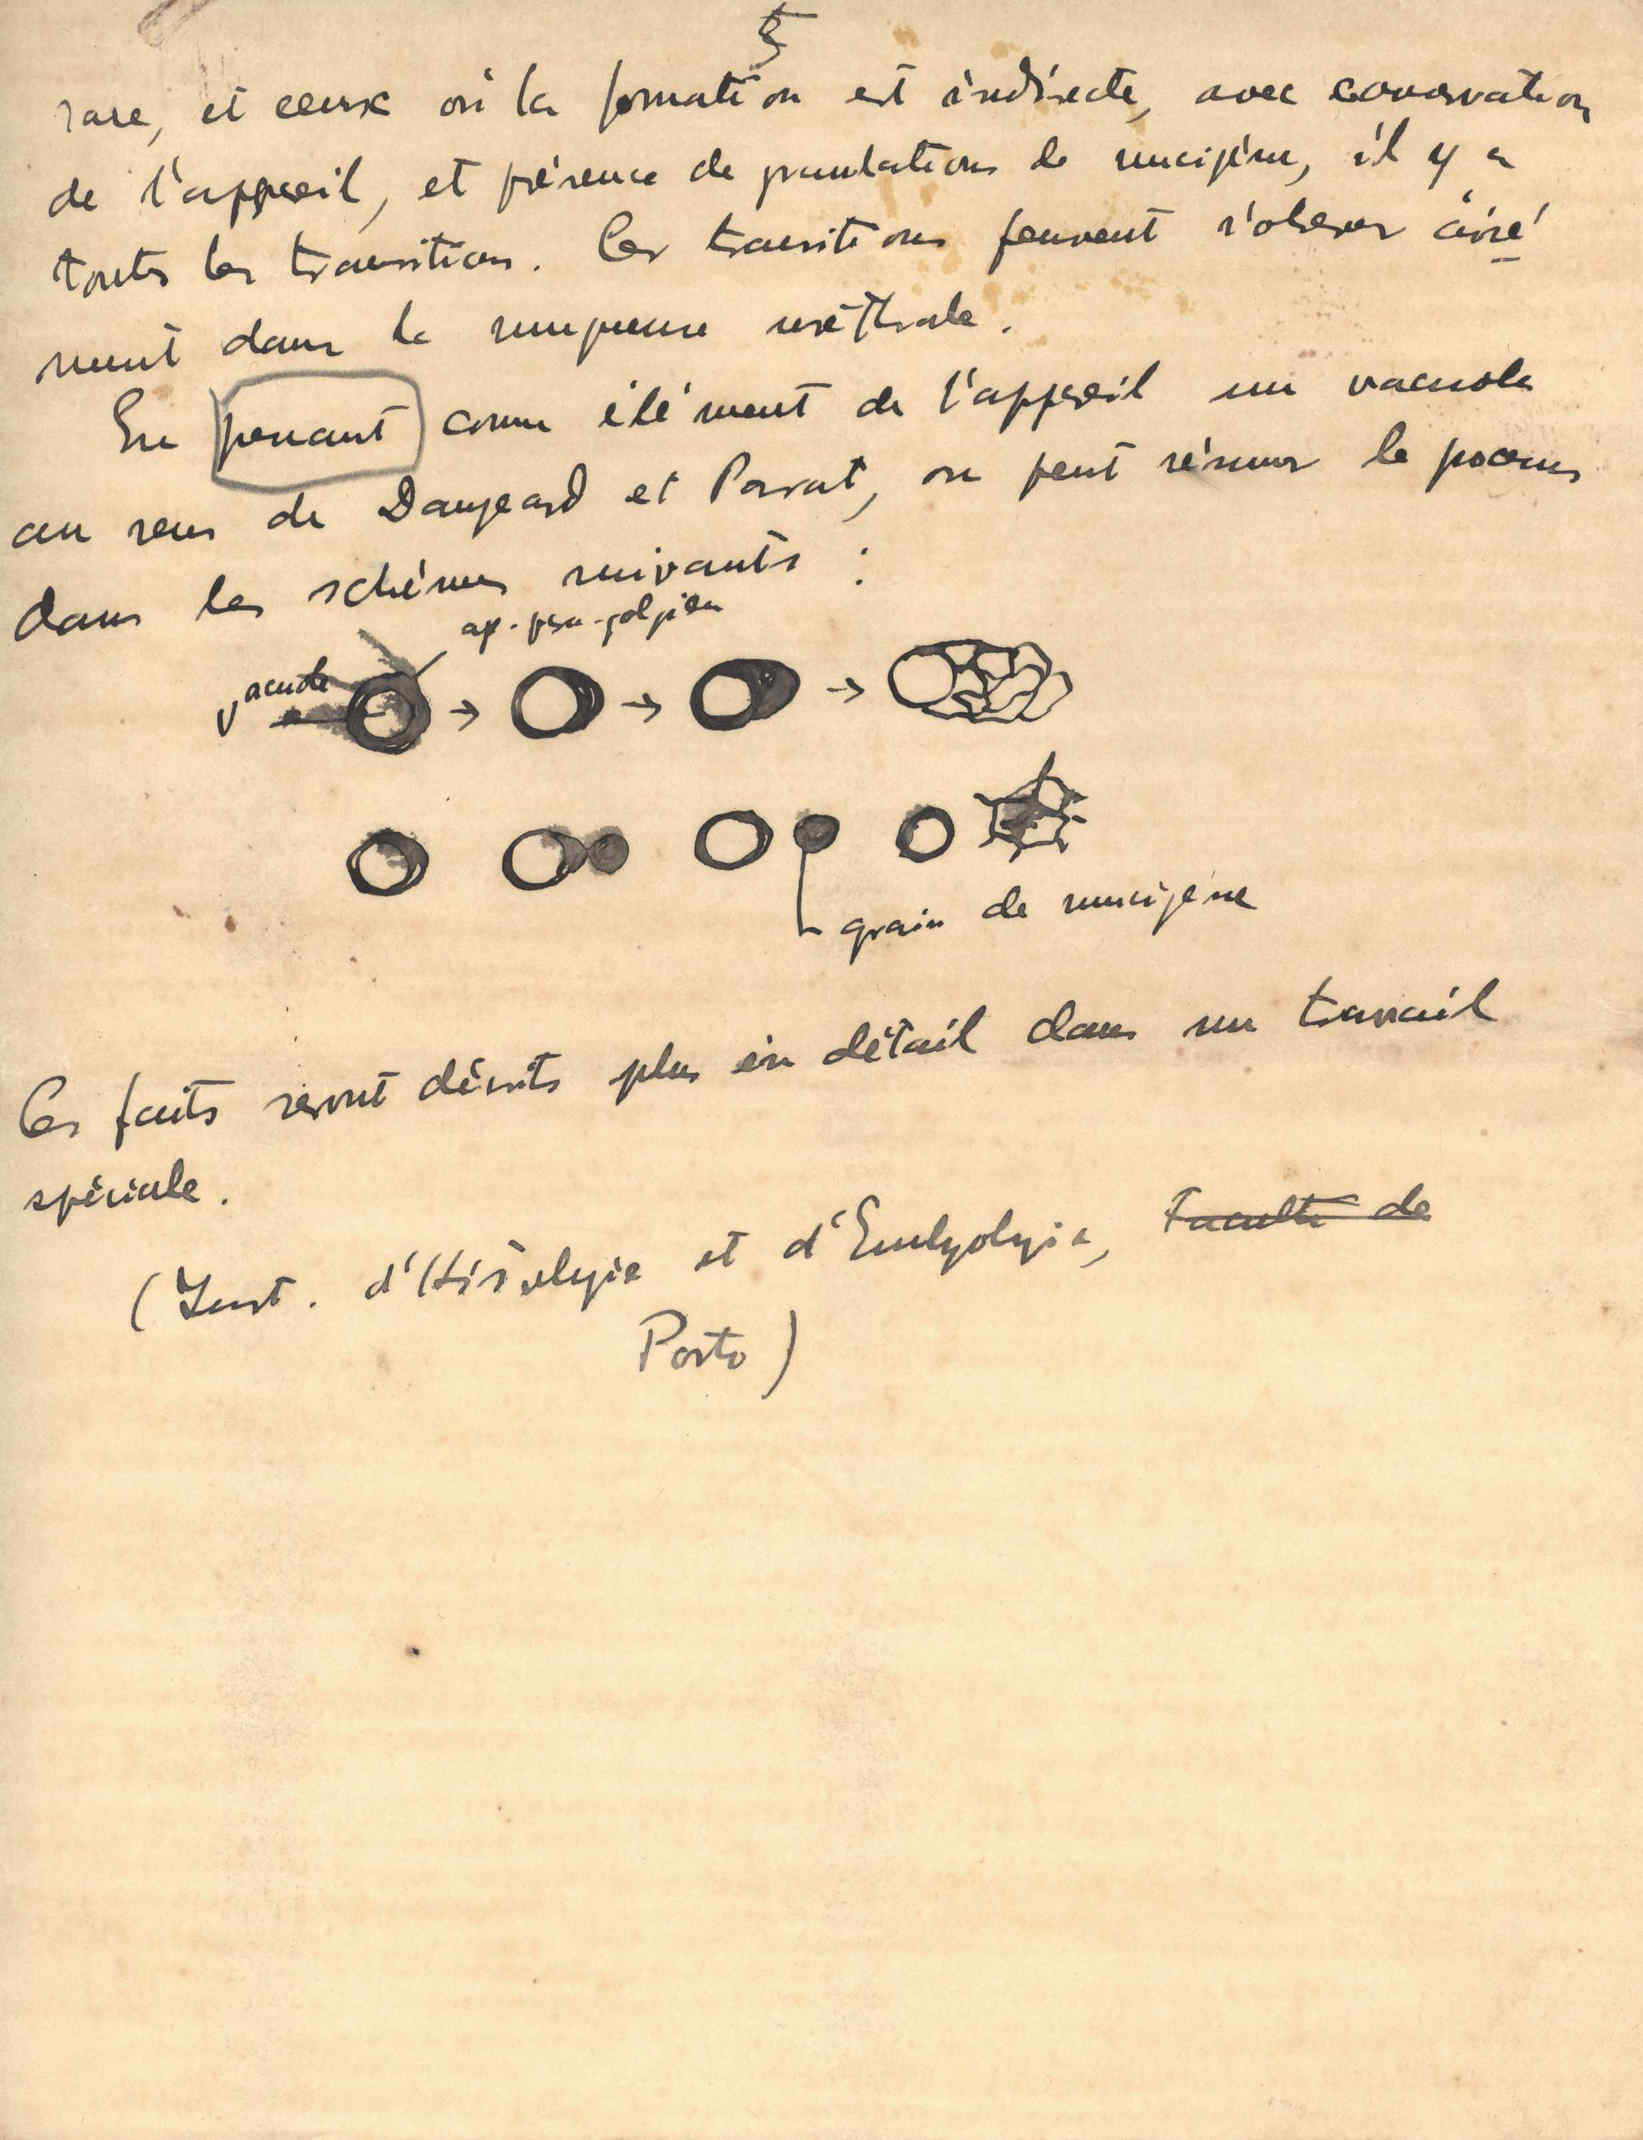 5
rare, et ceux où la formation est indirecte, avec conservation
de l'appareil, et présence de granulations de mucigène, il y a
toutes les transitions. Ces transitions peuvent s'observer aisé
ment dans la muqueuse uréthrale.
En prenant comme élément de l'appareil une vacuole
au sens de Dangeard et Parat, on peut résumer le processus
dans les schémas suivants :
ap. para-golgien
vacuole
grain de mucigène
Ces faits seront décrits plus en détail dans un travail
spéciale.
(Inst. d'Histologie et d'Embryologie, Faculté de
Porto)